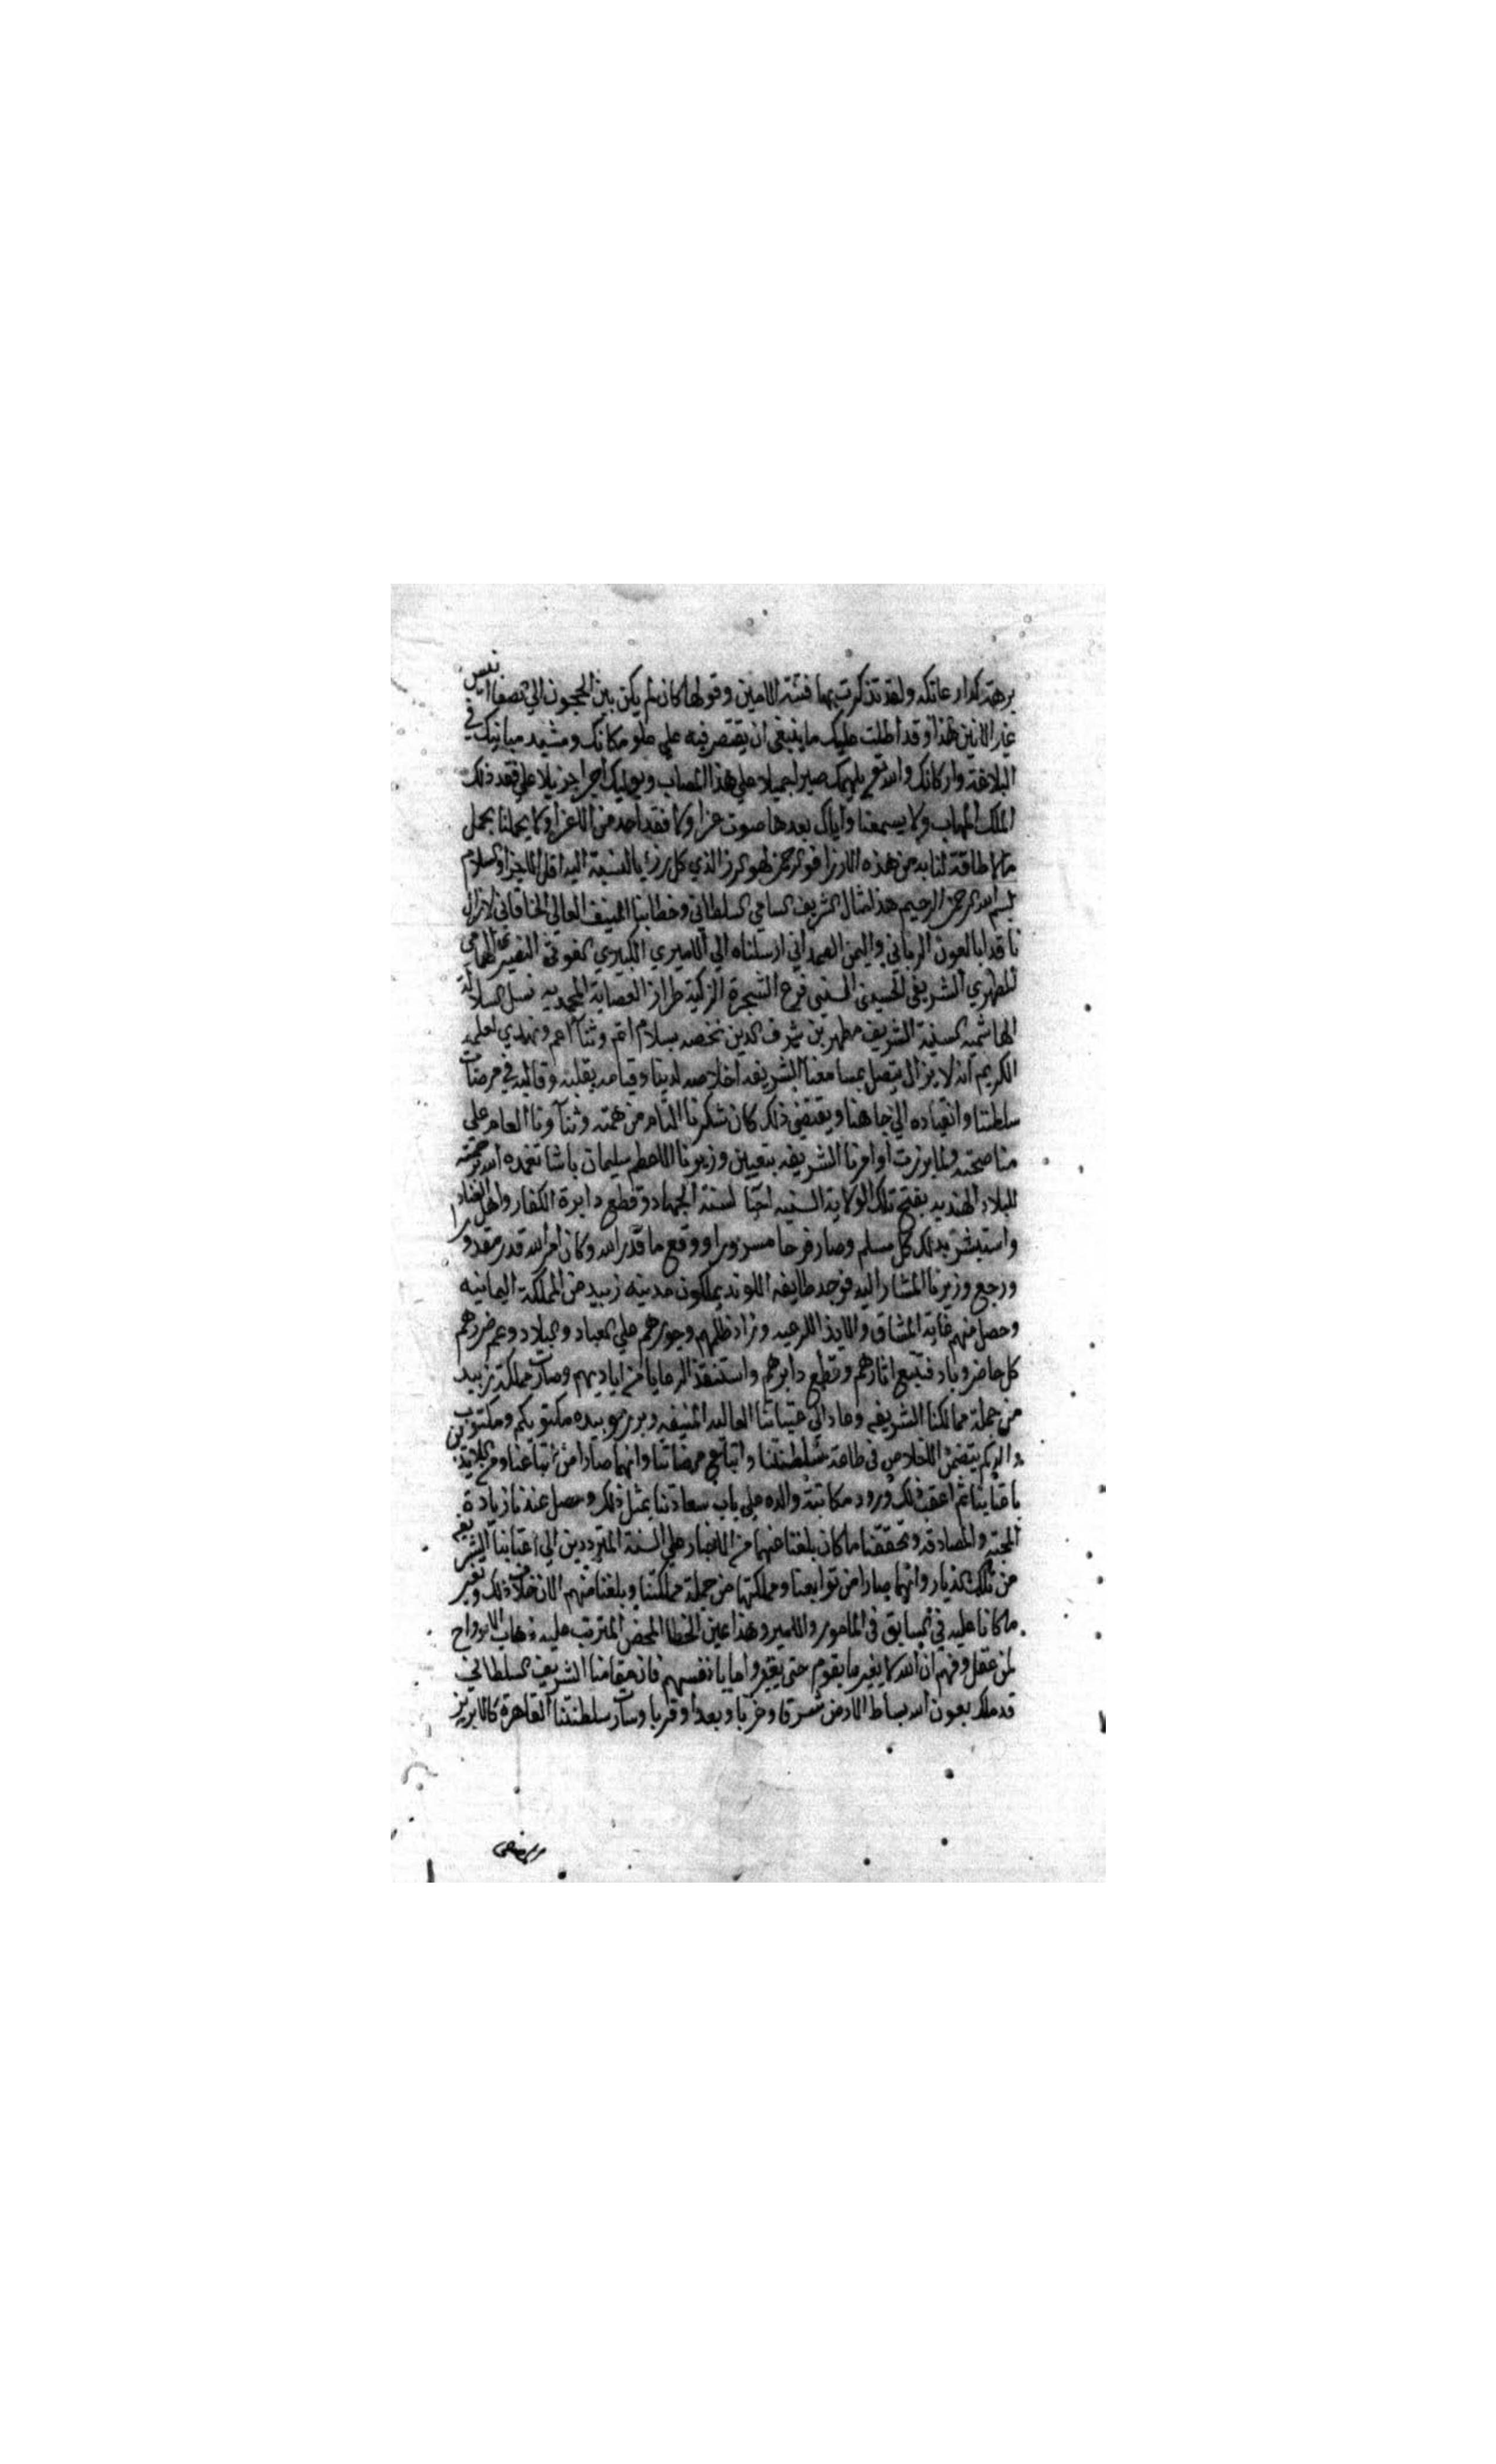 برهة كدار عاتكه ولقد تذكرت بها فتنة الامين وقولها كان لم يكن بين الحجون الي الصفا انيس
غير الانين هذا وقد أطلت عليك ما ينبغي ان يقتصر فيه علي علو مكانك ومشيد مبانيك في
البلاغة واركانك والله تع يلهمك صبرا جميلا علي هذا المصاب ويوليك اجرا جزيلا علي فقد ذلك
الملك المهاب ولا يسمعنا واياك بعدها صوت عزا ولا فقد احد من الاعزا ولا يحملنا بحمل
مالا طاقة لنا به من هذه الارزا فوالرحمن لهو الرزء الذي كل رزء بالنسبة اليه اقل الاجزا والسلام
بسم الله الرحمن الرحيم هذا مثال الشريف السامي السلطاني وخطابنا المنيف العالي الخاقاني لازال
نافذا بالعون الرباني واليمن الصمداني ارسلناه الي الاميري الكبيري العوني النصيري الهمامي
المطهري الشريفي الحسيبي فرع الشجرة الزكية طراز العصابة المحمدية نسل السلالة
الهاشمية السنية الشريف مطهر بن شرف الدين نخصه بسلام اتم وثنآ اعم ونبدي لعلمه
الكريم انه لا يزال يتصل بمسامعنا الشريفه اخلاصه لدينا وقيامه بقلبه وقالبه في مرضات
سلطنتنا وانقياده الي جاهنا ويقتضي ذلك كان شكرنا التام من همته وثنآونا العام علي
مناصحته ولما برزت اوامرنا الشريفه بتعيين وزيرنا الاعظم سليمان باشا تغمده الله برحمته
للبلاد الهنديه بفتح تلك الولاية السنيه احيآ لسنة الجهاد وقطع دابرة الكفار واهل العناد
واستبشر بذلك كل مسلم وصار فرحا مسرورا ووقع ما قدر الله وكان امر الله قدرا مقدورا
ورجع وزيرنا المشار اليه فوجد طايفه اللوند يملكون مدينه زبيد من المملكة اليمانيه
وحصل منهم غاية المشاق والاذية للرعيه وزاد ظلمهم وجورهم علي العباد والبلاد وعم ضررهم
كل حاضر وباد فتتبع اثارهم وقطع دابرهم واستنقذ الرعايا من اياديهم وصارت مملكة زبيد
من جملة ممالكنا الشريفه وعاد الي عتباتنا العاليه المنيفه وبرز وبيده مكتوبكم ومكتوب
والدكم يتضمن الاخلاص في طاعة سلطنتنا واتباع مرضاتنا وانهما صارا من اتباعنا ومن اللايذين
باعتابنا ثم اعقب ذلك ورود مكاتبة والده علي باب سعادتنا بمثل ذلك وحصل عندنا زيادة
المحبة والمصادقه وتحققنا ما كان بلغنا عنهما من الاخبار علي السنة المترددين الي اعتابنا الشريفه
من تلك الديار وانهما صارا من توابعنا ومملكتهما من جملة مملكتنا وبلغنا منهم الان خلاف ذلك وتغير
ما كانا عليه في السابق في المامور والامير وهذا عين الخطا المحض المترتب عليه ذهاب الارواح
لمن عقل وفهم ان الله لا يغير ما بقوم حتي يغيروا ما بانفسهم فان مقامنا الشريف السلطاني
قد ملك بعون الله بساط الارض شرقا وغربا وبعدا وقربا وسارت سلطنتنا القاهرة كالابريز